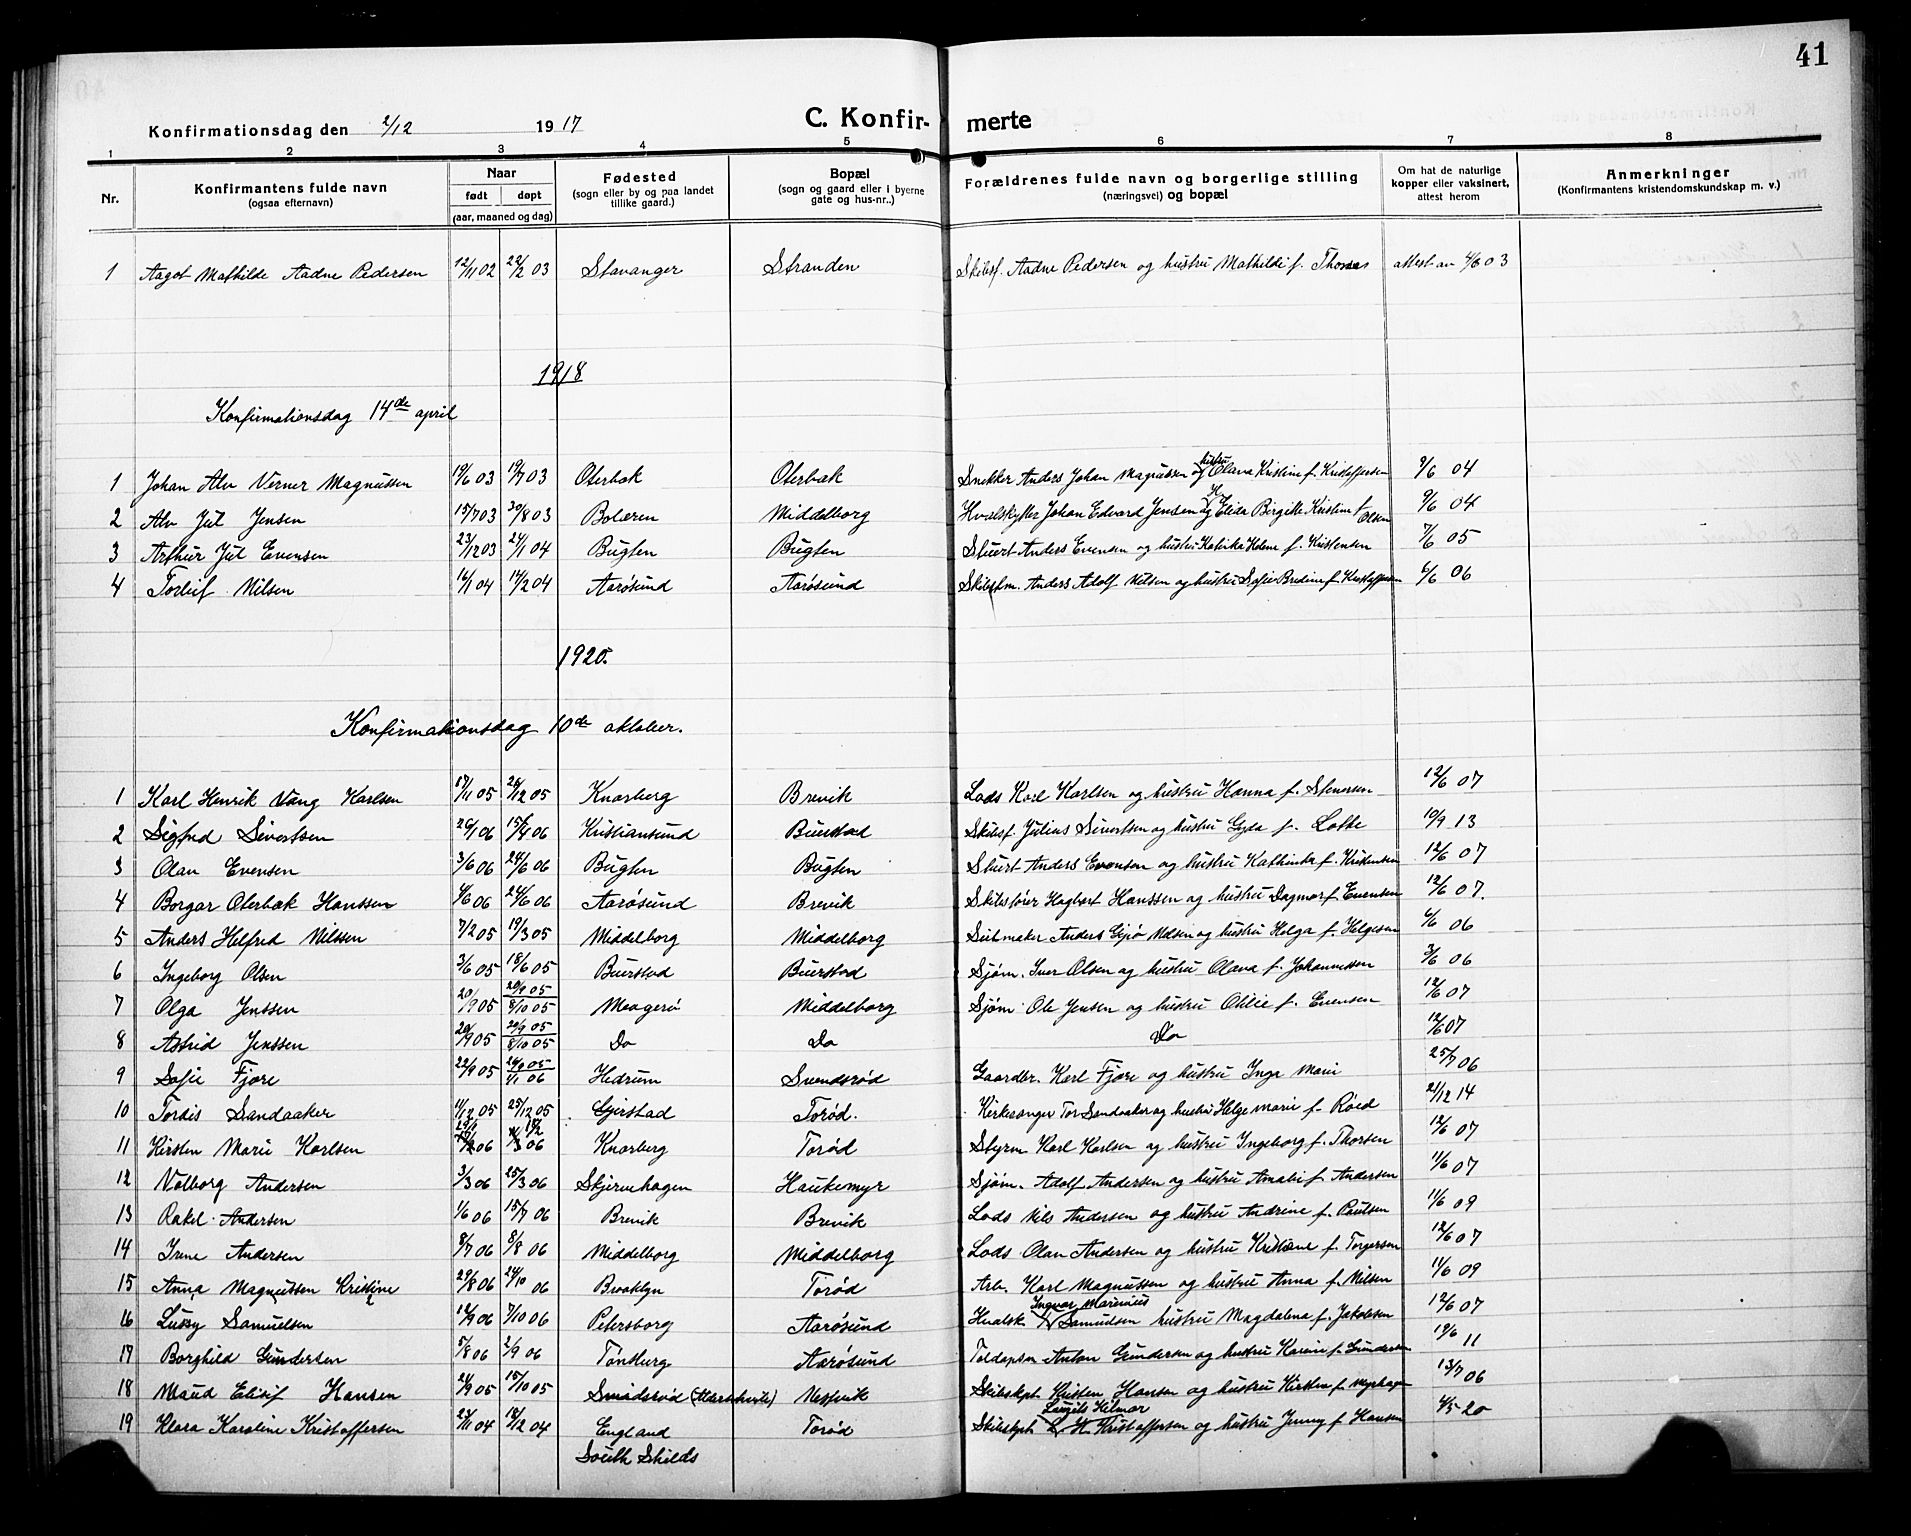 41
Konfirmationsdag den 2/12 1917 C. Konfir- merte
1 2 3 4 5 6 7 8
Nr. Konfirmantens fulde navn (ogsaa efternavn) Naar født døpt (aar, maaned og dag) Fødested (sogn eller by og paa landet tillike gaard.) Bopæl (sogn og gaard eller i byerne gate og hus-nr..) Forældrenes fulde navn og borgerlige stilling (næringsvei) og bopæl Om hat de naturlige kopper eller vaksinert, attest herom Anmerkninger (Konfirmantens kristendomskundskap m. v.)
1 Aagot Mathilde Aadne Pedersen 12/11 02 22/2 03 Stavanger Stranden Skibsf. Aadne Pedersen og hustru Mathilde f. Thomas attest av 4/6 03
1918
Konfirmationsdag 14de april
1 Johan Alv Verner Magnussen 19/6 03 19/7 03 Oterbæk Oterbæk Snekker Anders Johan Magnussen og hustru Olava Kristine f. Kristoffersen 9/6 04
2 Alv Jul Jensen 15/7 03 30/8 03 Bolæren Middelborg Hvalskytter Johan Edvard Jensen og H. Elida Birgitte Kristine f Olsen 9/6 04
3 Arthur Jul Evensen 23/12 03 24/1 04 Bugten Bugten Stuert Anders Evensen og hustru Katrika Helene f. Kristensen 7/6 05
4 Torleif Nilsen 16/1 04 14/2 04 Aarøsund Aarøsund Skibstm. Anders Adolf Nilsen og hustru Sofie Bredine f. Kristoffersen 6/6 06
1920.
Konfirmationsdag 10de oktober.
1 Karl Henrik Vang Karlsen 17/11 05 26/12 05 Knarberg Brevik Lods Karl Karlsen og hustru Hanna f. Stensen 12/6 07
2 Sigfred Sivertsen 26/1 06 15/4 06 Kristiansund Buerstad Skibsf. Julius Sivertsen og hustru Gyda f. Lotte 10/9 13
3 Olav Evensen 3/6 06 24/6 06 Bugten Bugten Stuert Anders Evensen og hustru Kathinka f. Kristensen 12/6 07
4 Borgar Oterbæk Hanssen 4/6 06 24/6 06 Aarøsund Brevik Skibsfører Hagbart Hanssen og hustru Dagmar f Evensen 12/6 07.
5 Anders Helfred Nilssen 7/2 05 19/3 05 Middelborg Middelborg Seilmaker Anders Gijø Nilsen og hustru Helga f. Helgesen 6/6 06
6 Ingeborg Olsen 3/6 05 18/6 05 Buerstad Buerstad Sjøm. Iver Olsen og hustru Olava f. Johannessen 3/6 06
7 Olga Jenssen 20/9 05 20/9 05 8/10 05 Maagerø Middelborg Sjøm. Ole Jensen og hustru Otilie f. Evensen 12/6 07
8 Astrid Jenssen 20/9 05 20/9 05 8/10 05 Do Do Do 12/6 07
9 Sofie Fjære 22/9 05 24/9 05 1/1 06 Hedrum Svendsrød Gaardbr. Karl Fjære og hustru Inga Marie 25/7 06
10 Tordis Sandaaker 11/12 05 25/12 05 Gjerstad Torød. Kirkesanger Tor Sandaaker og hustru Helge marie f. Røed 21/12 14
11 Kirsten Marie Karlsen 06 06 Knarberg Torød Styrm Karl Karlsen og hustru Ingeborg f. Thorsen 12/6 07
12 Valborg Andersen 3/3 06 25/3 06 Skjervehagen Haukemyr Sjøm. Adolf Andersen og hustru Amalie f Andersen 11/6 07
13 Rakel Andersen 1/6 06 15/7 06 Brevik Brevik Lods Nils Andersen og hustru Andrine f. Paulsen 11/6 09
14 Irene Andersen 8/7 06 8/8 06 Middelborg Middelborg Lods Olav Andersen og hustru Kristiane f. Torgersen 12/6 07
15 Anna Magnussen Kristine 29/8 06 24/10 06 Brooklyn Torød Arb. Karl Magnussen og hustru Anna f. Nilsen 11/6 09
16 Lussy Samuelsen 12/9 06 7/10 06 Petersborg Aarøsund Hvalsk. Ingvar Marinius Samuelsen hustru Magdalena f. Jakobsen 12/6 07
17 Borghild Gundersen 5/8 06 2/9 06 Tønsberg Aarøsund Toldopsm Anton Gundersen og hustru Karine f. Gundersen 19/6 11
18 Maud Elisif Hansen 24/9 05 15/10 05 Smidsrød Nesbrik Skibskpt. Kristen Hansen og hustru Kirstine f. Myrhagen 13/7 06
19 Klara Karoline Kristoffersen 23/11 04 18/12 04 England South Shilds Torød Skibskpt Lauritz Hilmar L. H. Kristoffersen og hustru Jenny f. Hansen 4/5 20